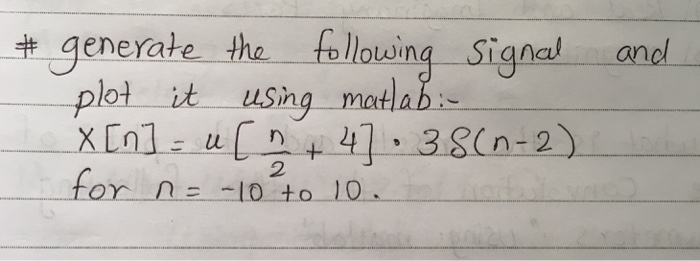 # generate the following signal and
plot it using matlab:-
X[n] = u[n/2 + 4] • 3δ(n-2)
for n = -10 to 10.